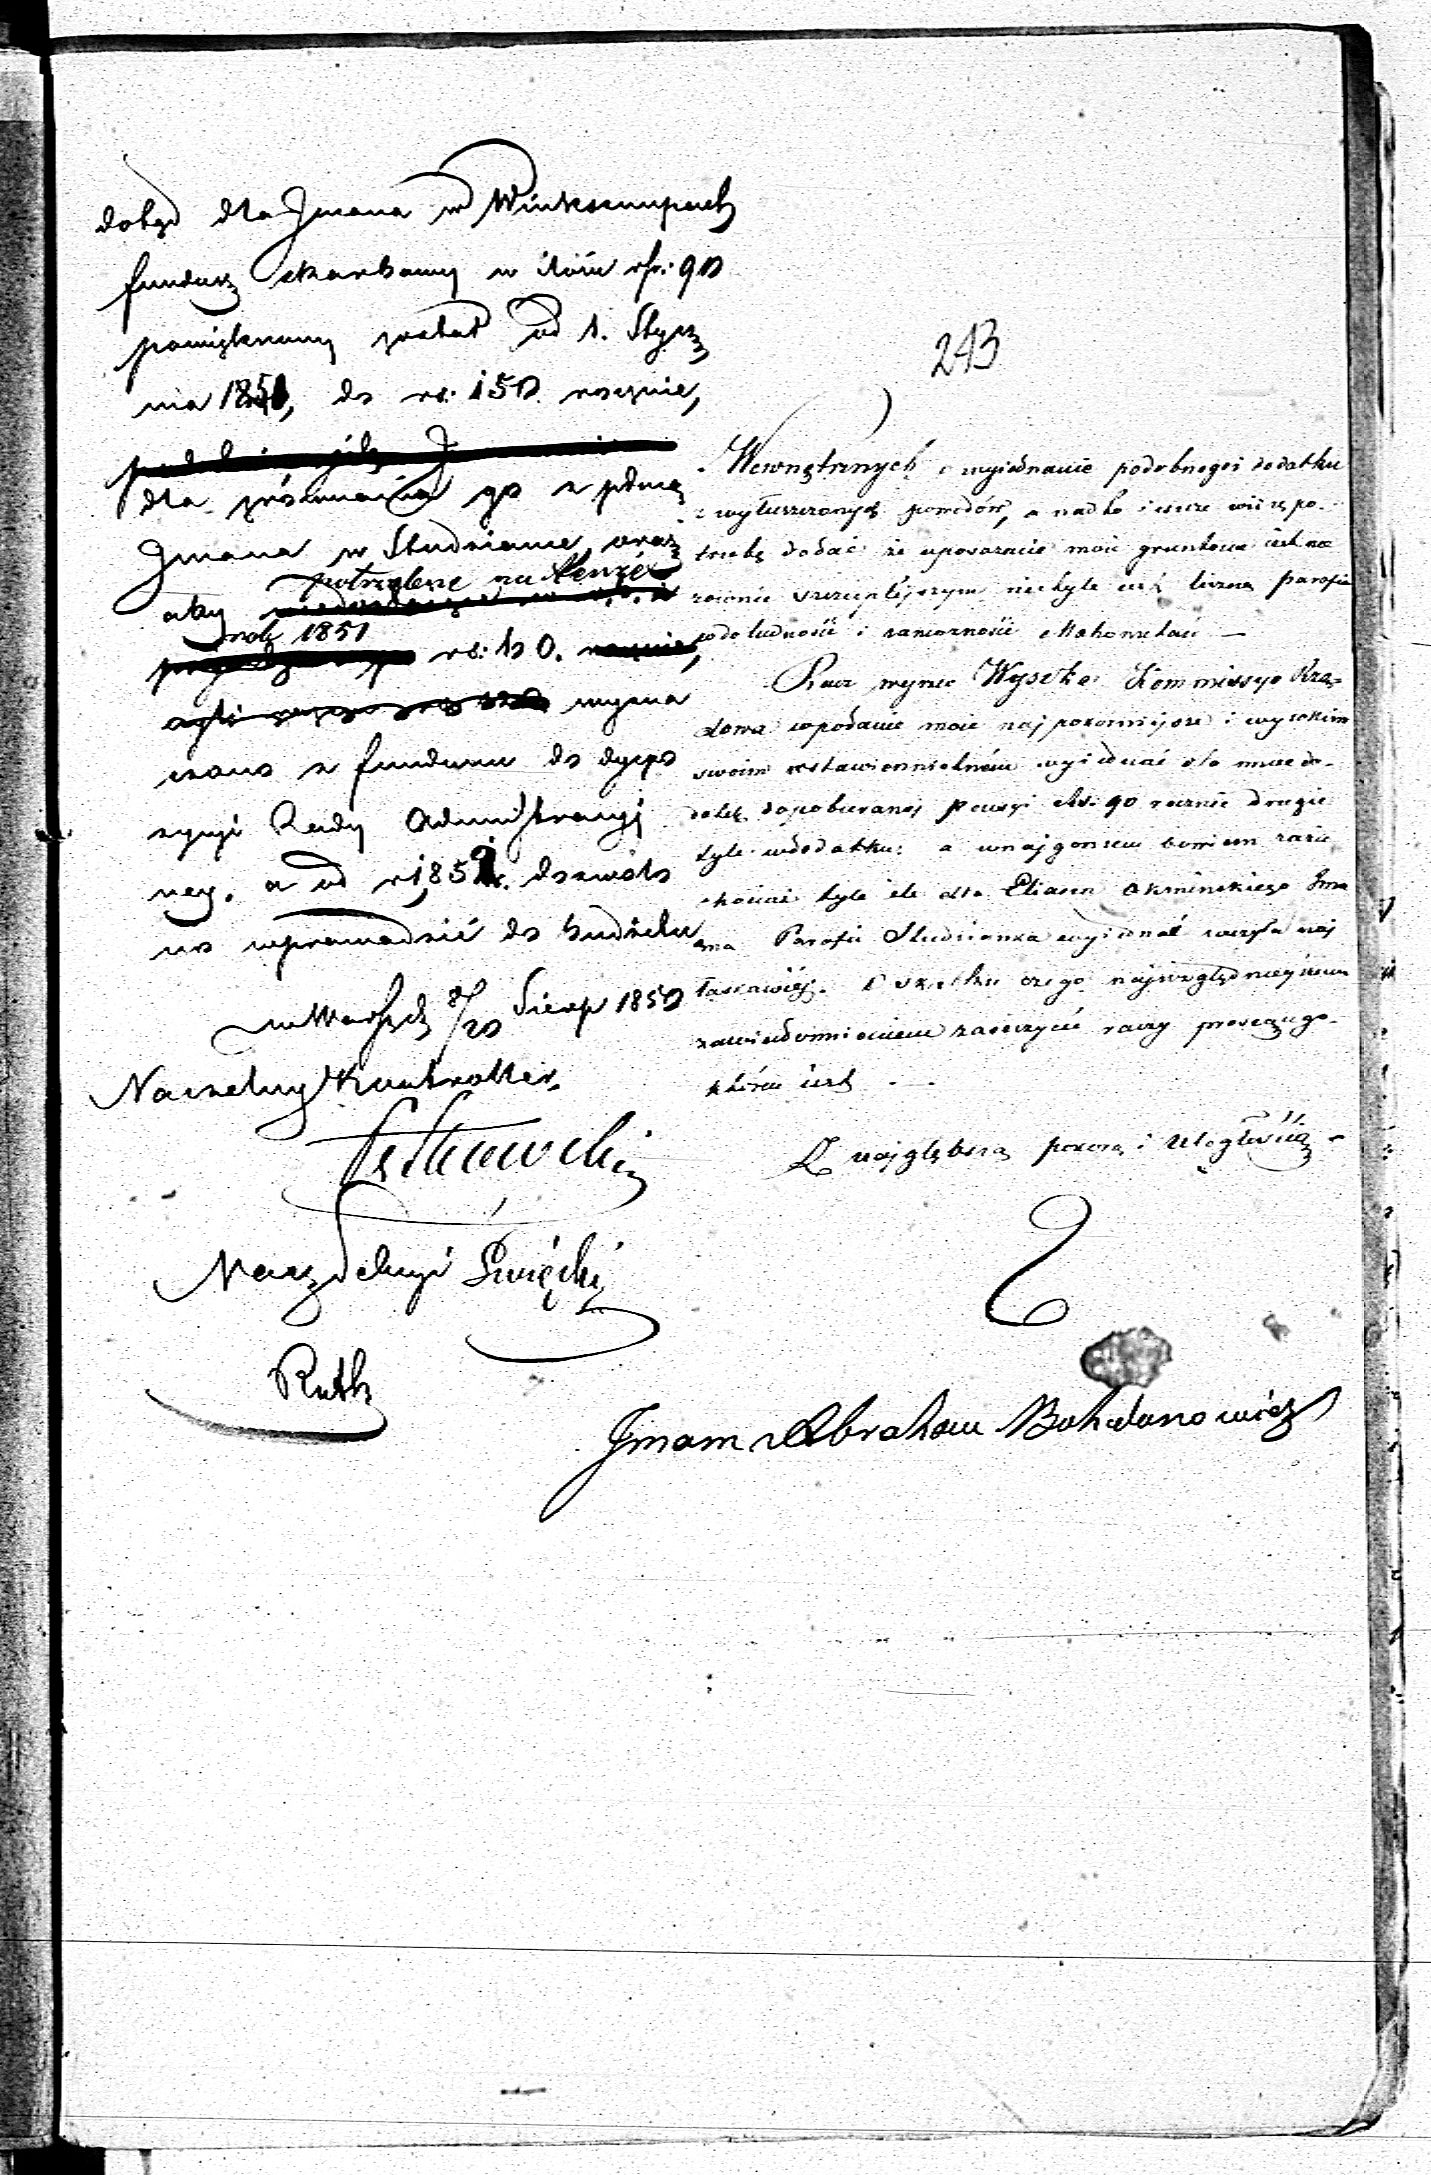 dotąd dla Imana w Winksznupach
fundusz skarbowy w ilości rsr. 90
powiększony został od 1. Stycz
nia 1851, do rs. 150 rocznie,
dla zrównania go z płacą
Imana w Studziance, oraz
aby potrzebne na tenże
rok 1851
rs: 60. wyzna
czono z funduszu do dyspo
zycyi Rady Administracyj
ney. a od r. 1852. dozwolo
no wprowadzić do budżetu
w Warsz. d. 8/20 Sierp 1850
Naczelny Kontroller
Nacz. Sekcyi Święcki
Ruth
243
Wewnętrznych o wyiednanie podobnegoż dodatku
z wytłuszczonych powodów, a nadto ieszcze winien po-
trzebę dodać że uposażenie moie gruntowe iest na
równie szczuplejszym niebyle iest liczna parafia
co do ludności i zamożności Mahometan —
Racz więc Wysoka Kommissyo Rzą-
dowa podanie moie naj pokorniejsze i wysokim
swoim wstawiennictwem wyiednać dla mnie do
dotąd dopobieraney pensyi Rs: 90 rocznie drugie
tyle w dodatku: a w najgorszem bowiem razie
chociaż tyle ile dla Eliasza Okmińskiego Ima
na Parafii Studzianka wyiednać raczyła naj
łaskawiej. O skutku czego najwzględniejszem
zawiadomieniem zaszczycić raczy proszącego
którem iest
Z najgłębszą pokorą i uległością
Imam Abraham Bohdanowicz